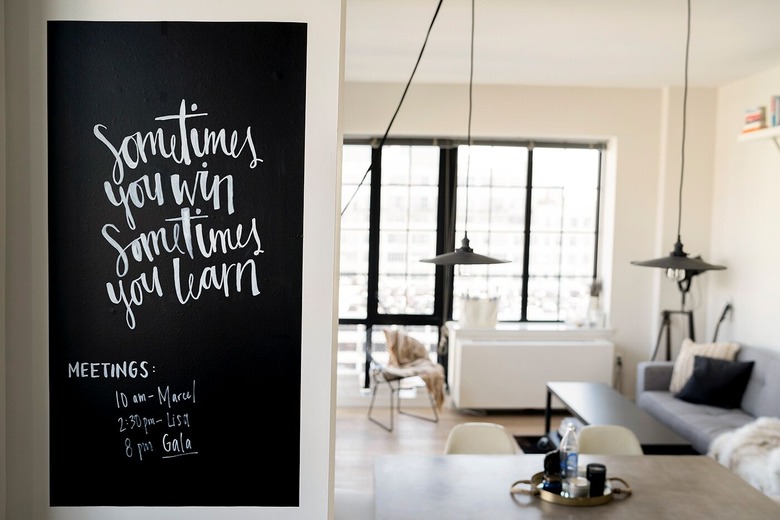 Sometimes
you win
Sometimes
you learn
MEETINGS:
10 am - Marcel
2:30pm - Lisa
8 pm Gala